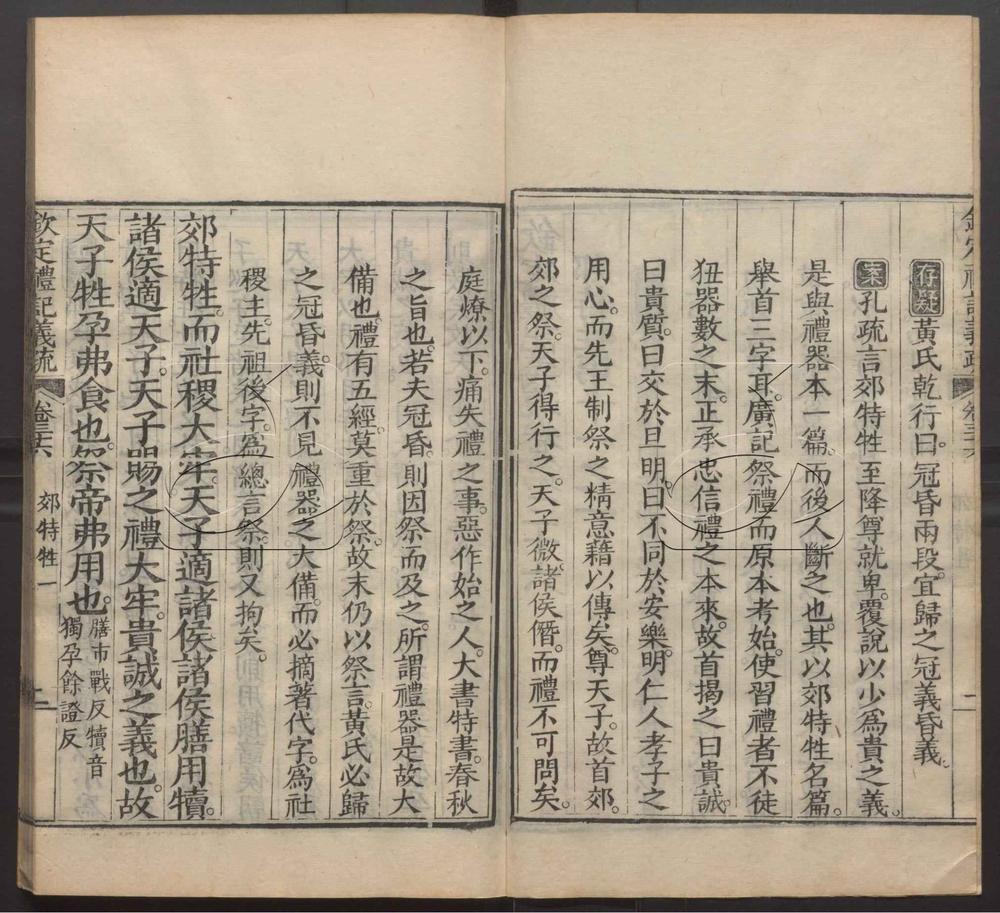 欽定禮記義疏 卷三十六 二
存疑黃氏乾行曰。冠昏兩段。宜歸之冠義昏義。
案孔疏言郊特牲至降尊就卑。覆說以少為貴之義。
是與禮器本一篇。而後人斷之也。其以郊特牲名篇。
舉首三字耳。廣記祭禮而原本考始。使習禮者不徒
狃器數之末。正承忠信禮之本來。故首揭之曰貴誠
曰貴質。曰交於旦明。曰不同於安樂。明仁人孝子之
用心。而先王制祭之精意。藉以傳矣。尊天子。故首郊。
郊之祭。天子得行之。天子微。諸侯僭。而禮不可問矣。
庭燎以下。痛失禮之事。惡作始之人。大書特書。春秋
之旨也。若夫冠昏。則因祭而及之。所謂禮器是故大
備也。禮有五經。莫重於祭。故末仍以祭言。黃氏必歸
之冠昏義。則不見禮器之大備。而必摘著代字。為社
稷主。先祖後字。為總言祭。則又拘矣。
郊特牲。而社稷大牢。天子適諸侯。諸侯膳用犢。
諸侯適天子。天子賜之禮大牢。貴誠之義也。故
天子牲孕弗食也。祭帝弗用也。膳市戰反犢音
獨孕餘證反
欽定禮記義疏 卷三十六 郊特牲一 二